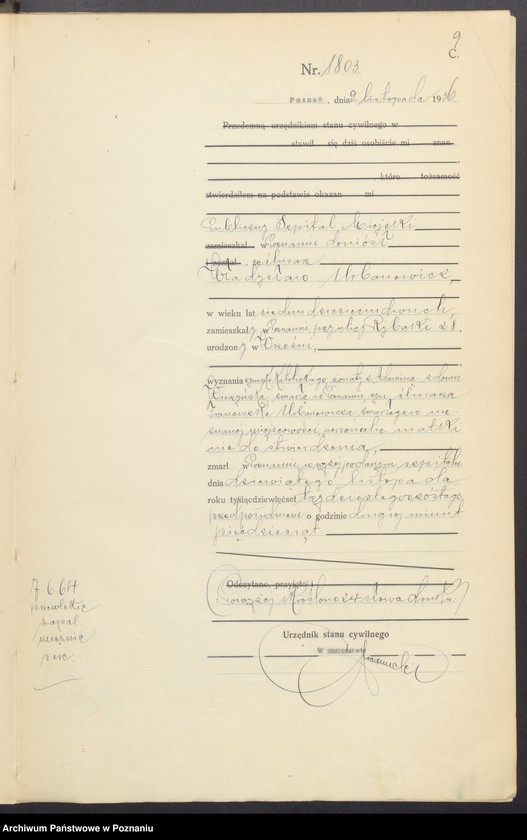 9
C.
Nr. 1803
Poznań, dnia 9 listopada 1936
Przedemną urzędnikiem stanu cywilnego w
stawił się dziś osobiście mi znan
, które tożsamość
stwierdziłem na podstawie okazan mi
Publiczny Szpital Miejski
zamieszkał w Poznaniu doniósł
i zeznał, że ślusarz
Władysław Urbanowicz,
w wieku lat siedemdziesięciudwóch,
zamieszkały w Poznaniu, przy ulicy Rybaki 28,
urodzony w Wrześni,
wyznania rzymsko Katolickiego żonaty z z domu
zmarłą w Poznaniu, syn ślusarza
Franciszka Urbanowicza zmarłego w nie
znanej miejscowości, personalie matki
nie do stwierdzenia,
zmarł w Poznaniu w wyżej podanym szpitalu
dnia dziewiątego listopada
roku tysiącdziewięćset trzydziestegoszóstego
przedpołudniem o godzinie drugiej minut
pięćdziesiąt.
Odczytano, przyjęto i
Powyżej skreślono słowa druku.
Urzędnik stanu cywilnego
W zastępstwie
przewlekłe
zapal.
mięśnia
serc.
Archiwum Państwowe w Poznaniu